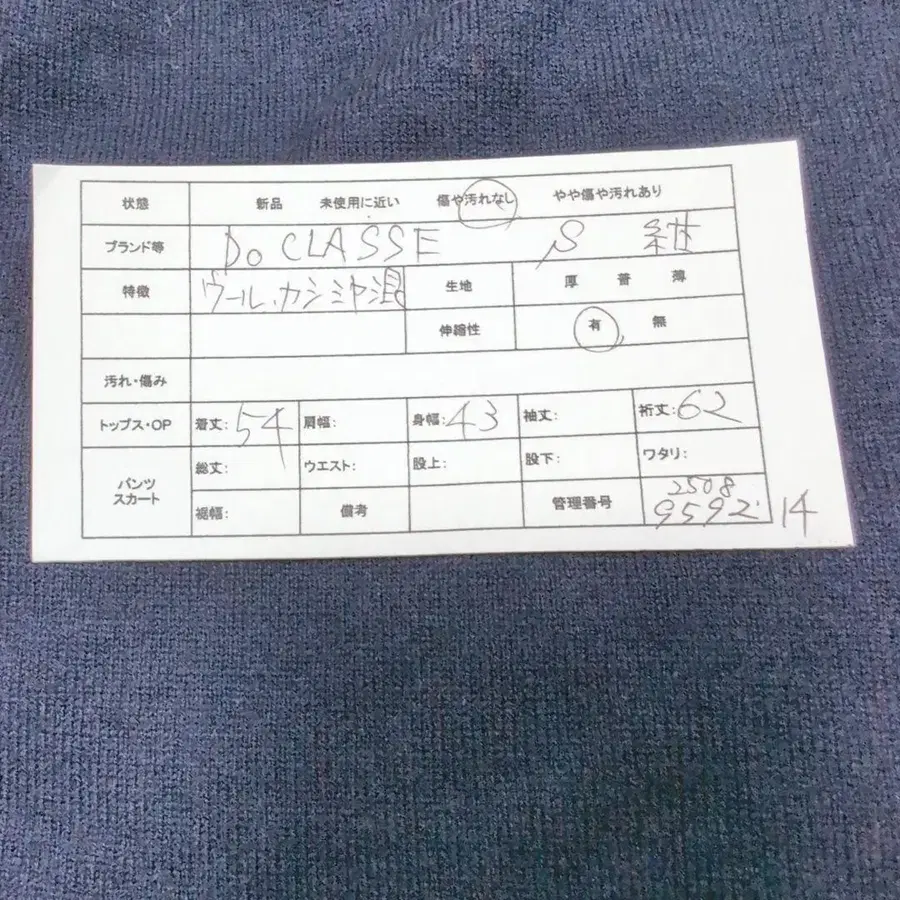 状態 新品 未使用に近い 傷や汚れなし やや傷や汚れあり
ブランド等 Do CLASSE S 紺
特徴 ウール、カシミヤ混 生地 厚 普 薄
伸縮性 有 無
汚れ・傷み
トップス・OP 着丈:54 肩幅: 身幅:43 袖丈: 裄丈:62
パンツ スカート 総丈: ウエスト: 股上: 股下: ワタリ:
裾幅: 備考 管理番号 2508
9592 14